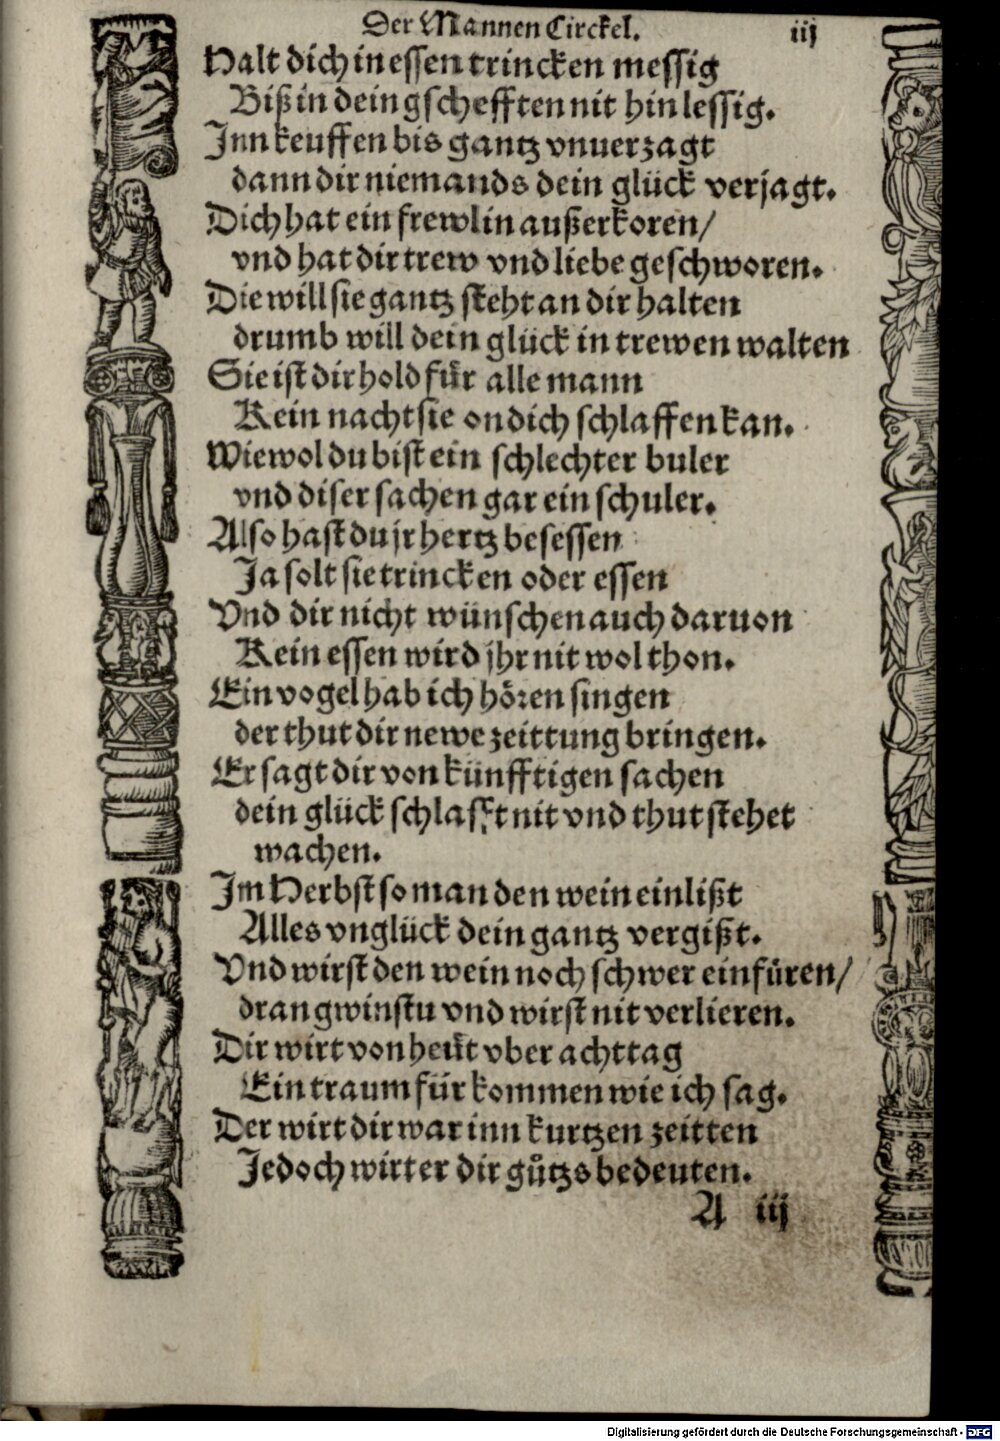 Der Mannen Circkel. iij
Halt dich in essen trincken messig
Biß in dein gschefften nit hin lessig.
Inn keuffen bis gantz vnuerzagt
dann dir niemands dein glück verjagt.
Dich hat ein frewlin außerkoren/
vnd hat dir trew vnd liebe geschworen.
Die will sie gantz steht an dir halten
drumb will dein glück in trewen walten
Sie ist dir hold für alle mann
Kein nacht sie on dich schlaffen kan.
Wiewol du bist ein schlechter buler
vnd diser sachen gar ein schuler.
Also hast du jr hertz besessen
Ja solt sie trincken oder essen
Vnd dir nicht wünschen auch daruon
Kein essen wird jhr nit wol thon.
Ein vogel hab ich hören singen
der thut dir newe zeittung bringen.
Er sagt dir von künfftigen sachen
dein glück schlafft nit vnd thut stehet
wachen.
Im Herbst so man den wein einlißt
Alles vnglück dein gantz vergißt.
Vnd wirst den wein noch schwer einfüren/
dran gwinstu vnd wirst nit verlieren.
Dir wirt von heüt vber acht tag
Ein traum fürkommen wie ich sag.
Der wirt dir war inn kurtzen zeitten
Jedoch wirt er dir gůtzs bedeuten.
A iij
Digitalisierung gefördert durch die Deutsche Forschungsgemeinschaft - DFG